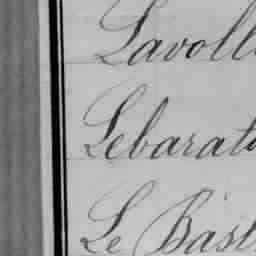 Lavoll
Lebarat
Le Bast